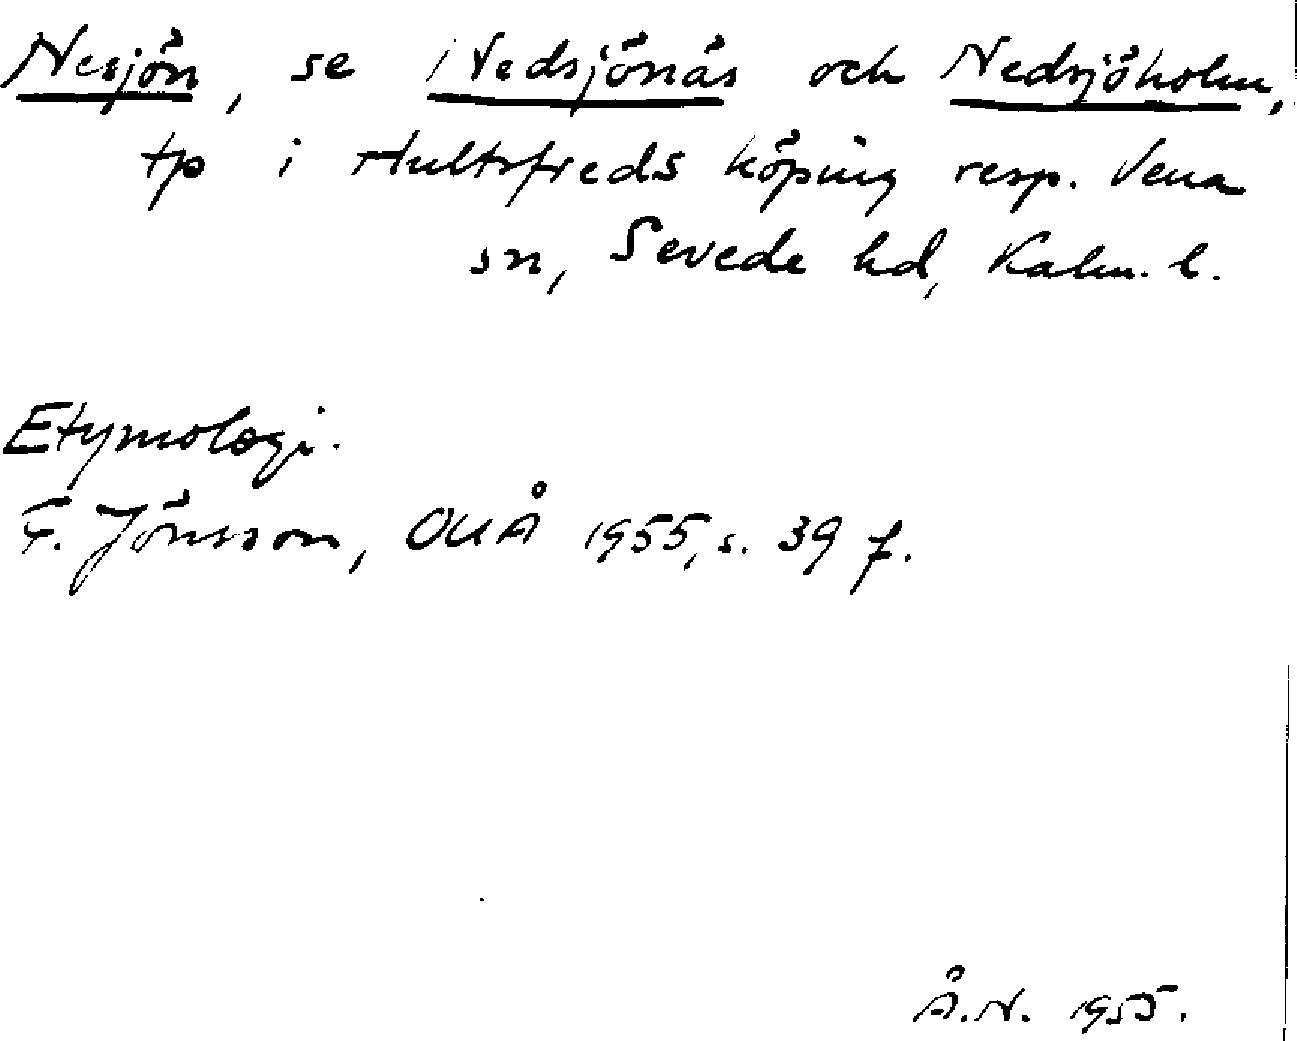 Nesjön, se Nedsjönäs och Nedsjöholm,
tp i Hultsfreds köping resp. Vena
sn, Sevede hd, Kalm. l.
Etymologi.
F. Jönsson, OUÅ 1955, s. 39 f.
Å.N. 1955.